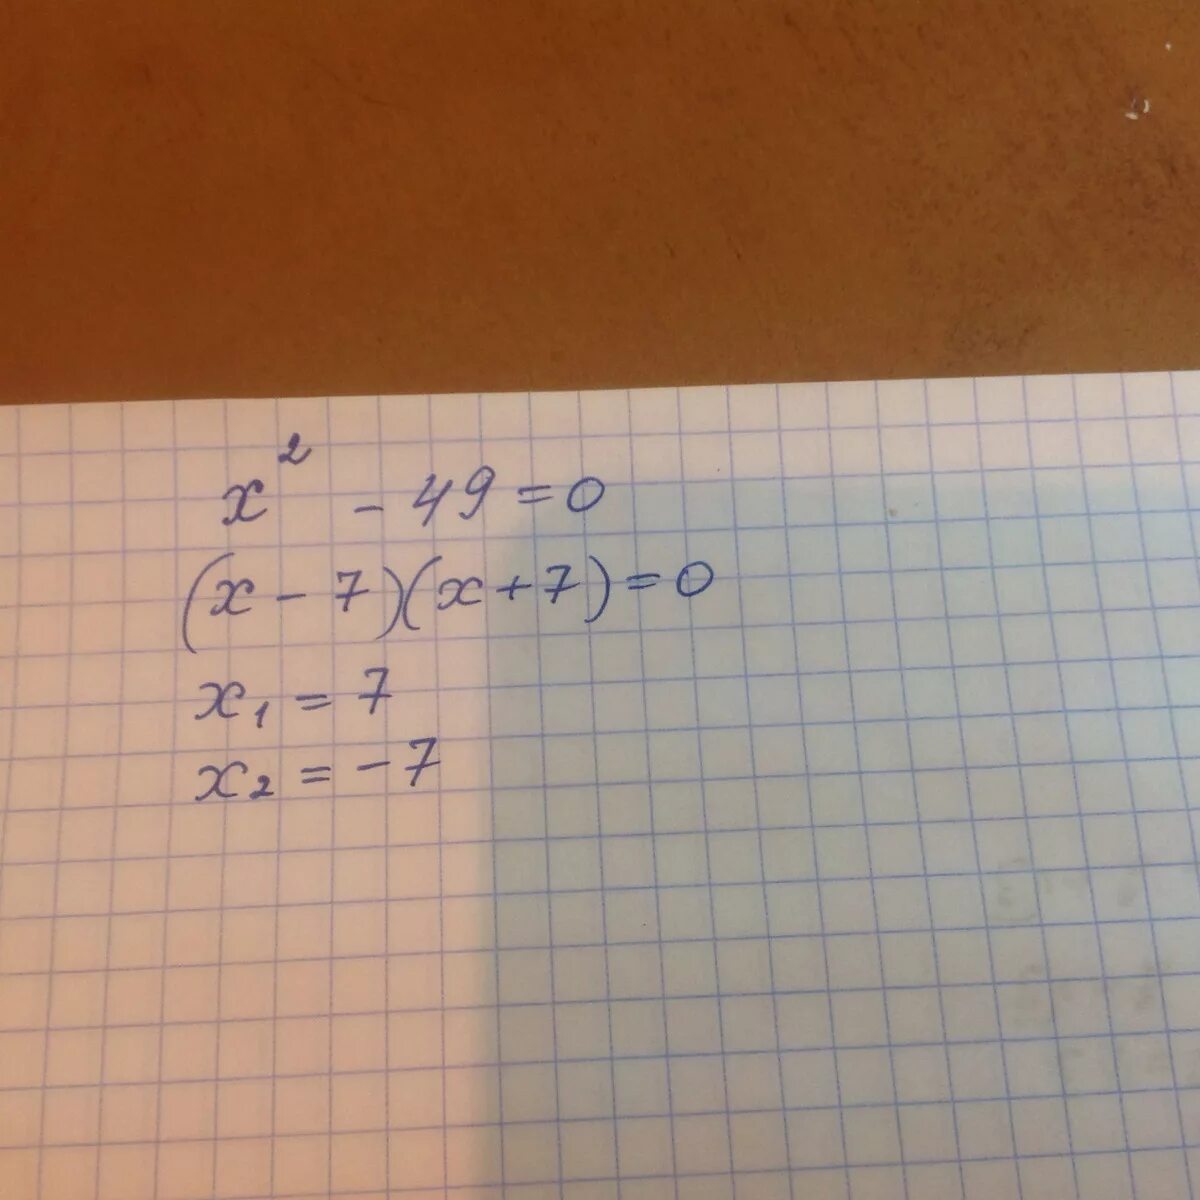 x² - 49 = 0
(x - 7)(x + 7) = 0
x₁ = 7
x₂ = -7